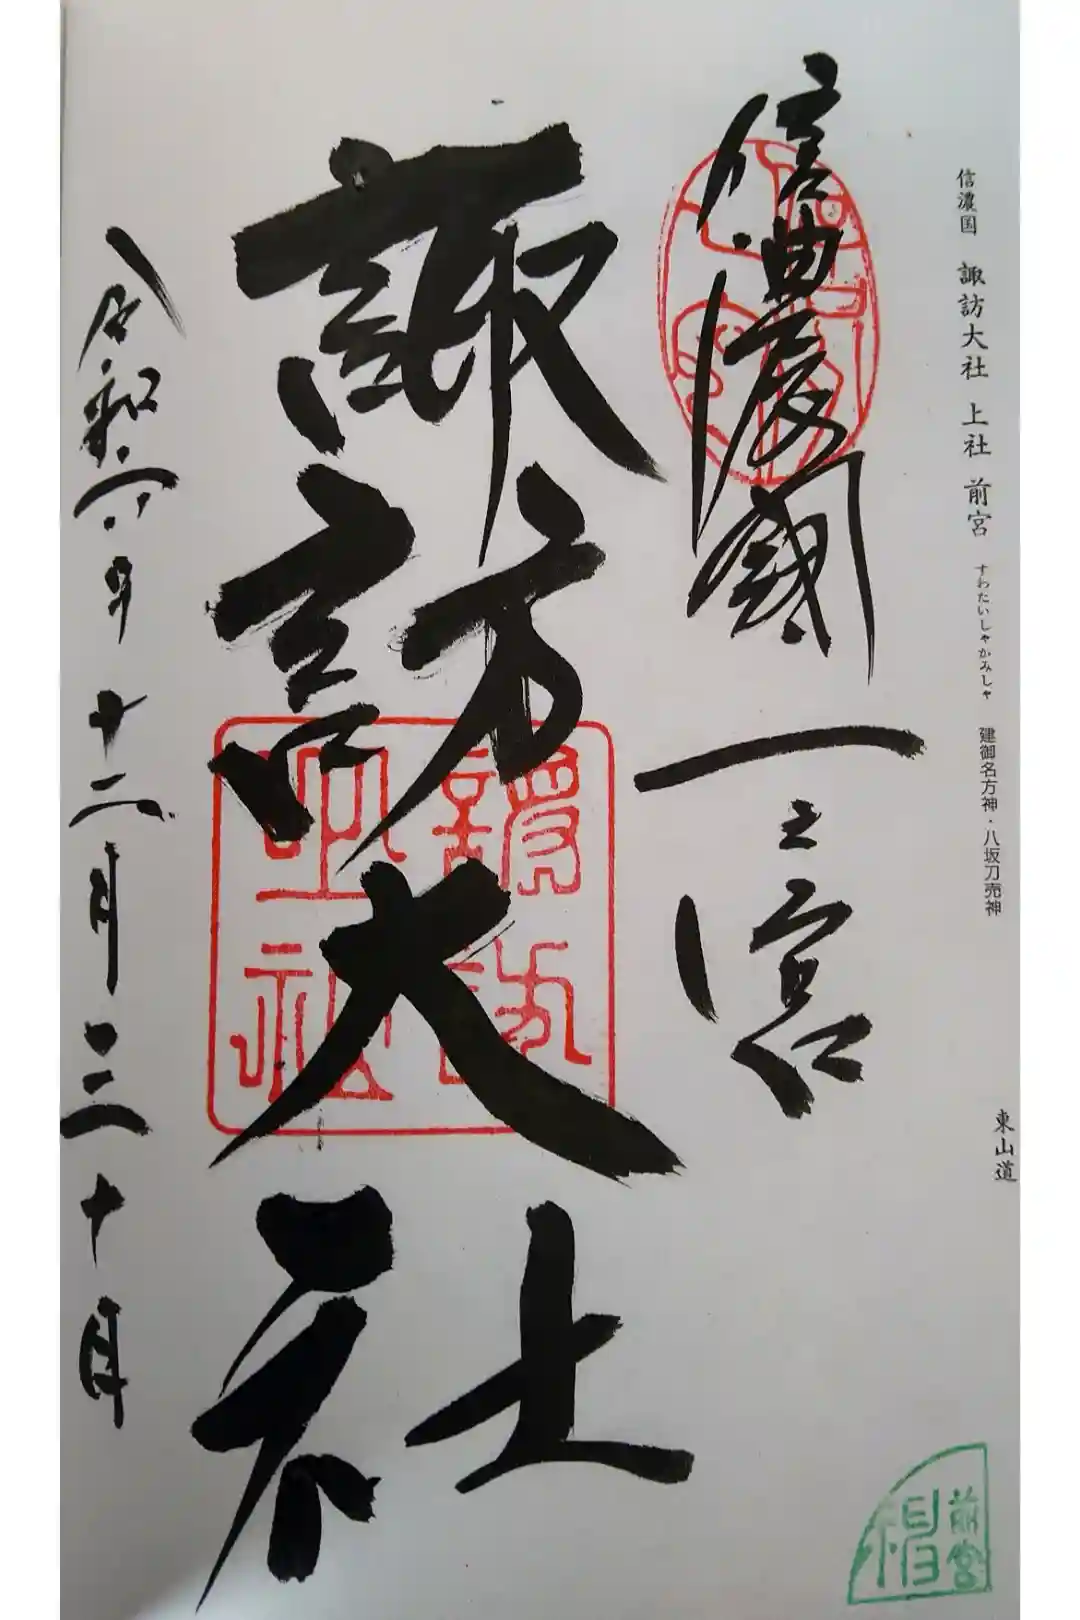 信濃国 諏訪大社 上社 前宮 すわたいしゃかみしゃ 建御名方神・八坂刀売神 東山道
信濃國一之宮
諏訪大社
令和六年十二月三十日
諏訪
大社
前宮